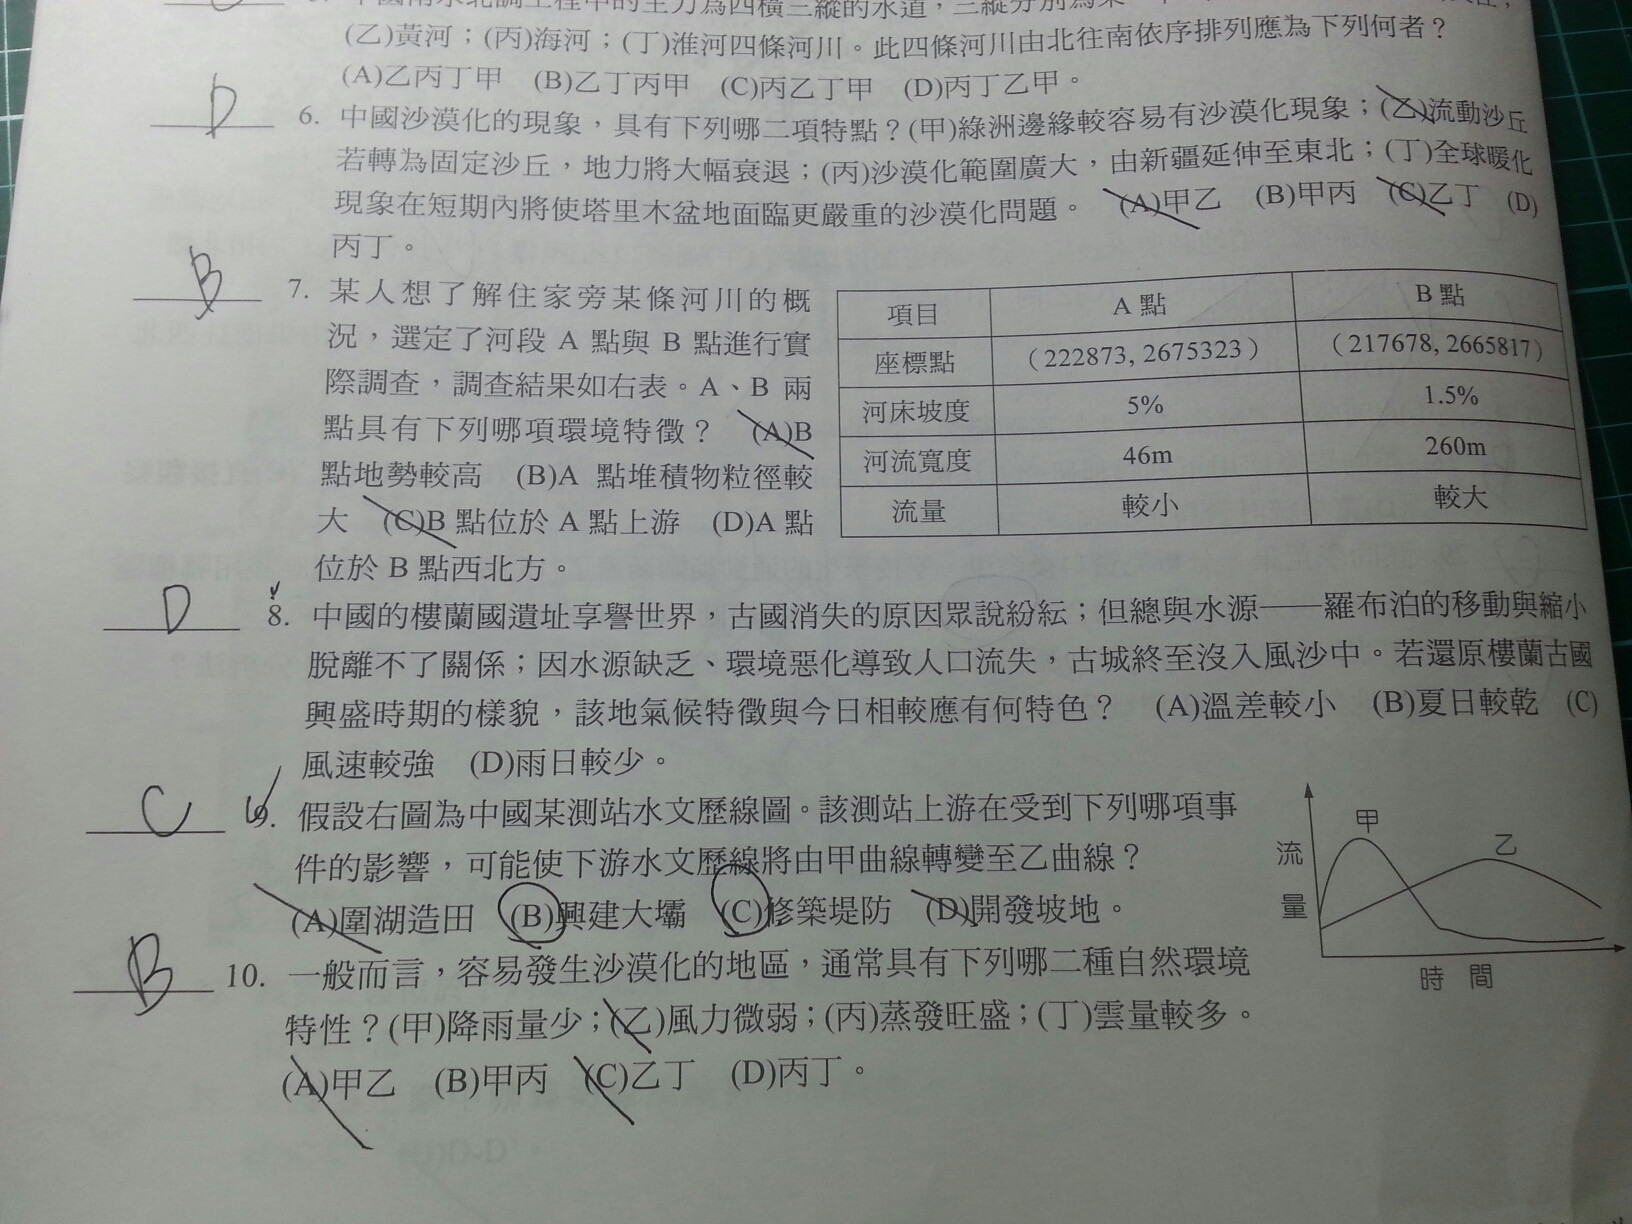 中國南水北調工程中的主力為四橫三縱的水道，三縱分別為
(乙)黃河；(丙)海河；(丁)淮河四條河川。此四條河川由北往南依序排列應為下列何者？
(A)乙丙丁甲　(B)乙丁丙甲　(C)丙乙丁甲　(D)丙丁乙甲。
D 6. 中國沙漠化的現象，具有下列哪二項特點？(甲)綠洲邊緣較容易有沙漠化現象；(乙)流動沙丘
若轉為固定沙丘，地力將大幅衰退；(丙)沙漠化範圍廣大，由新疆延伸至東北；(丁)全球暖化
現象在短期內將使塔里木盆地面臨更嚴重的沙漠化問題。　(A)甲乙　(B)甲丙　(C)乙丁　(D)
丙丁。
B 7. 某人想了解住家旁某條河川的概
況，選定了河段 A 點與 B 點進行實
際調查，調查結果如右表。A、B 兩
點具有下列哪項環境特徵？　(A)B
點地勢較高　(B)A 點堆積物粒徑較
大　(C)B 點位於 A 點上游　(D)A 點
位於 B 點西北方。
項目　A 點　B 點
座標點　（222873, 2675323）　（217678, 2665817）
河床坡度　5%　1.5%
河流寬度　46m　260m
流量　較小　較大
D 8. 中國的樓蘭國遺址享譽世界，古國消失的原因眾說紛紜；但總與水源——羅布泊的移動與縮小
脫離不了關係；因水源缺乏、環境惡化導致人口流失，古城終至沒入風沙中。若還原樓蘭古國
興盛時期的樣貌，該地氣候特徵與今日相較應有何特色？　(A)溫差較小　(B)夏日較乾　(C)
風速較強　(D)雨日較少。
C 9. 假設右圖為中國某測站水文歷線圖。該測站上游在受到下列哪項事
件的影響，可能使下游水文歷線將由甲曲線轉變至乙曲線？
(A)圍湖造田　(B)興建大壩　(C)修築堤防　(D)開發坡地。
甲
乙
流
量
時　間
B 10. 一般而言，容易發生沙漠化的地區，通常具有下列哪二種自然環境
特性？(甲)降雨量少；(乙)風力微弱；(丙)蒸發旺盛；(丁)雲量較多。
(A)甲乙　(B)甲丙　(C)乙丁　(D)丙丁。